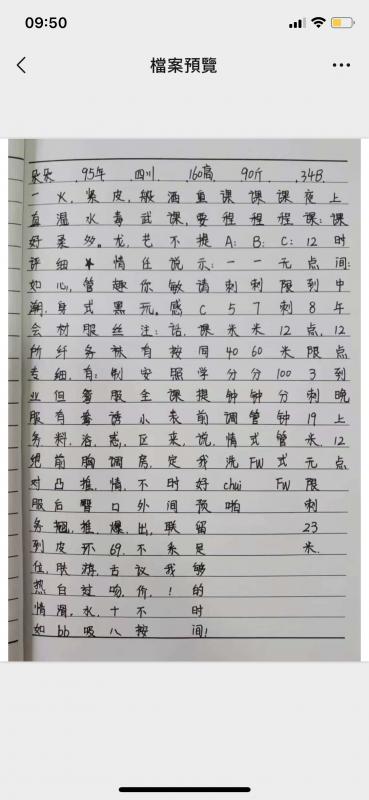 09:50
檔案預覽
朵朵 95年 四川 160高 90斤 34B
一直好评如潮,会所专业服务绝对服务到位,热情如
火,温柔细心,身材纤细,但有料,前凸后翘,皮肤白滑,bb
紧,水多。管式服务有:浴,胸推,臀推,环游,过水,吸
皮毒龙,情趣黑丝袜制服诱惑,调情,口爆,69,古吻,十八
般武艺任你玩。注:有安全小区房,不外出,不议价,不按
课,不说敏感话,按照课表来定时间联系我!
要提示:请C同学提前说,我好预留足够的时间!
课程A:一刺5米40分钟调情洗chui啪
课程B:一刺7米60分钟管式FW
课程C:元限刺12米100分钟管式FW
夜课:12点到8点,限3刺19米元限刺23米.
上课时间:中年12点到晚上12点